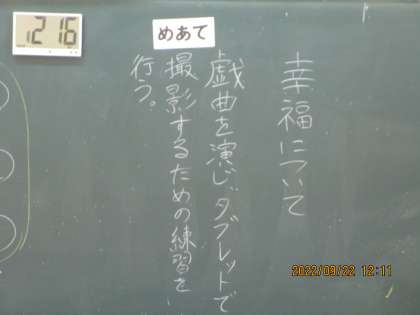 幸福について
めあて
戯曲を演じ、タブレットで
撮影するための練習を
行う。
12:16
2022/09/22 12:11